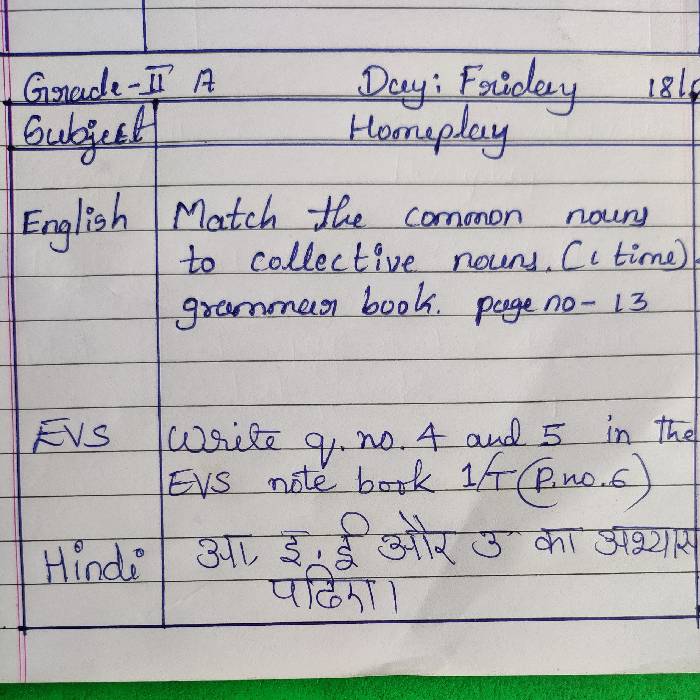 Grade-II A Day: Friday 18/
Subject Homeplay
English Match the common nouns
to collective nouns. (1 time).
grammar book. page no - 13
EVS Write q. no. 4 and 5 in the
EVS note book 1/T (P. no. 6)
Hindi आ, इ, ई और उ का अभ्यास
पढिए।